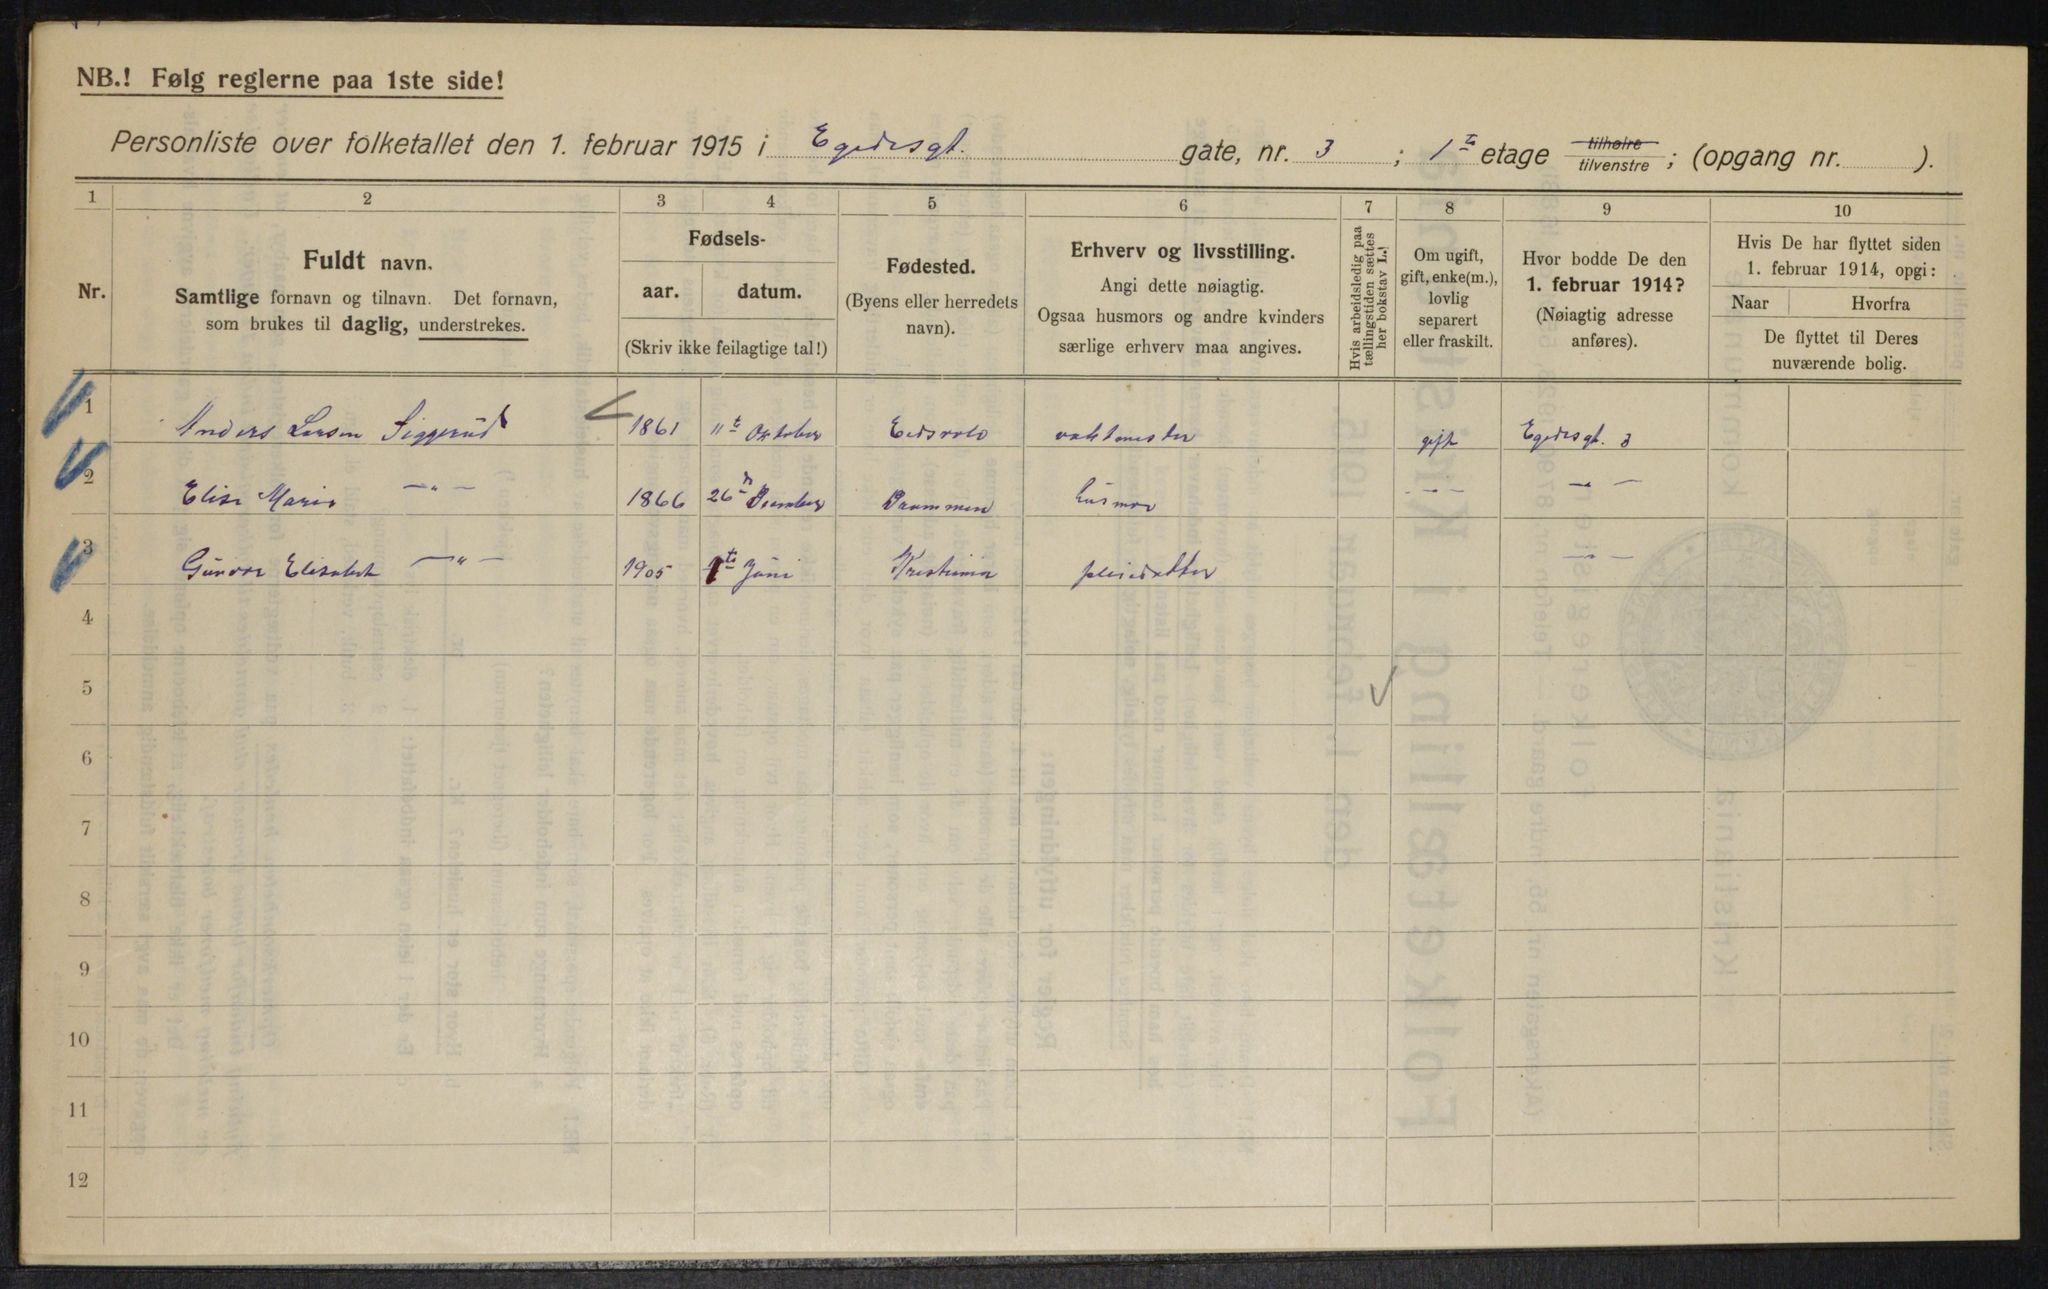 NB.! Følg reglerne paa 1ste side!
Personliste over folketallet den 1. februar 1915 i Egedesgt. gate, nr. 3 ; 1ste etage tilhøire tilvenstre ; (opgang nr. ).
1 2 3 4 5 6 7 8 9 10
Nr.
Fuldt navn.
Samtlige fornavn og tilnavn. Det fornavn,
som brukes til daglig, understrekes.
Fødsels-
aar. datum.
(Skriv ikke feilagtige tal!)
Fødested.
(Byens eller herredets
navn).
Erhverv og livsstilling.
Angi dette nøiagtig.
Ogsaa husmors og andre kvinders
særlige erhverv maa angives.
Hvis arbeidsledig paa
tællingstiden sættes
her bokstav L.!
Om ugift,
gift, enke(m.),
lovlig
separert
eller fraskilt.
Hvor bodde De den
1. februar 1914?
(Nøiagtig adresse
anføres).
Hvis De har flyttet siden
1. februar 1914, opgi:
Naar Hvorfra
De flyttet til Deres
nuværende bolig.
1 Anders Larsen Siggerud 1861 11te Oktober Eidsvold vaktmester gift Egedesgt. 3
2 Elise Marie —"— 1866 26de December Drammen husmor —"— —"—
3 Gunvor Elisabeth —"— 1905 1ste Juni Kristiania pleiedatter —"—
4
5
6
7
8
9
10
11
12